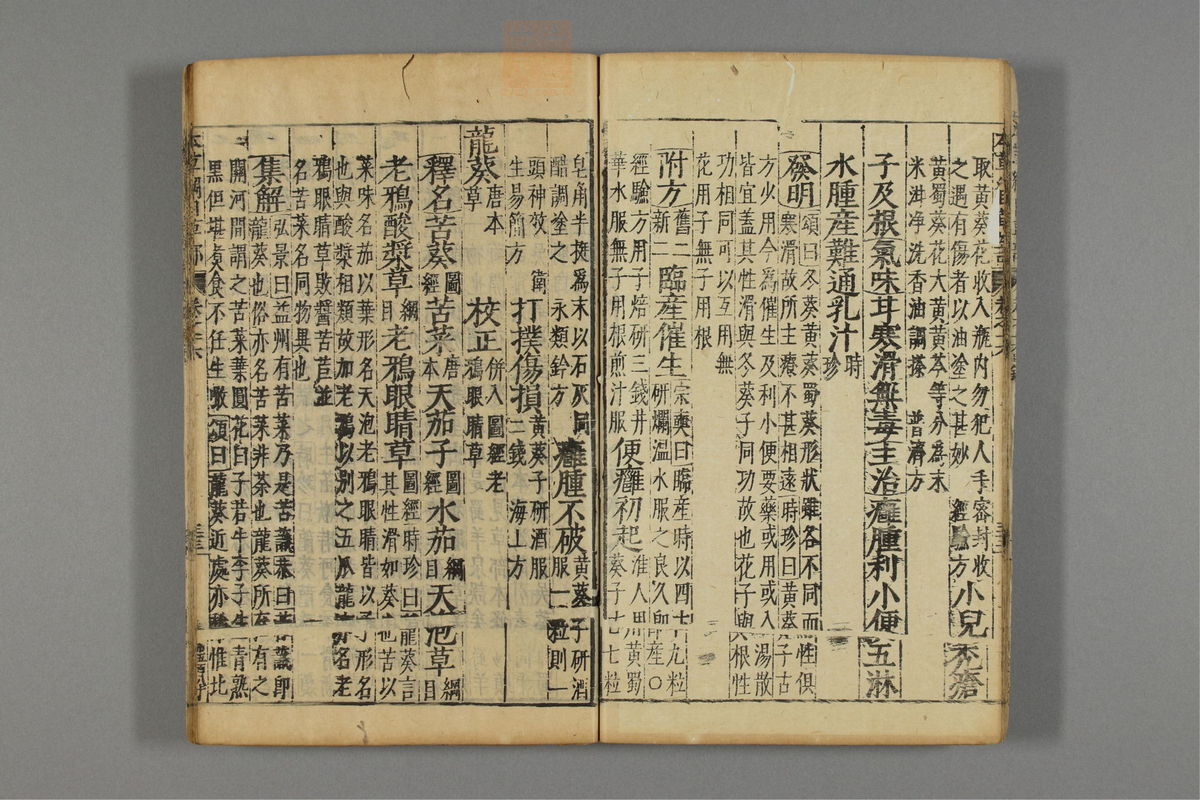 取黃葵花收入瓶內勿犯人手密封收
之遇有傷者以油塗之甚妙 經驗方 小兒禿瘡
黃蜀葵花大黃黃芩等分為末
米泔净洗香油調搽 普濟方
子及根氣味甘寒滑無毒主治癰腫利小便五淋
水腫產難通乳汁 時珍
發明 頌曰冬葵黃葵蜀葵形狀雖各不同而性俱
寒滑故所主療不甚相遠時珍曰黃葵子古
方少用今為催生及利小便要藥或用或入湯散
皆宜蓋其性滑與冬葵子同功故也花子與根性
功相同可以互用無
花用子無子用根
附方 舊二新二 臨產催生 宗奭曰臨產時以四十九粒
研爛温水服之良久卽產○
經驗方用子焙研三錢井
華水服無子用根煎汁服 便癰初起 淮人用黃蜀
葵子十七粒
皂角半挺為末以石灰同
醋調塗之 永類鈐方 癰腫不破 黃葵子研酒
服一粒則一
頭神效 衛
生易簡方 打撲傷損 黃葵子研酒服
二錢 海上方
龍葵 唐本草 校正 併入圖經老
鴉眼睛草
釋名苦葵 圖經 苦菜 唐本 天茄子 圖經 水茄 綱目 天泡草 綱目
老鴉酸漿草 綱目 老鴉眼睛草 圖經時珍曰龍葵言
其性滑如葵也苦以
菜味名茄以葉形名天泡老鴉眼睛皆以子形名
也與酸漿相類故加老鴉以別之五爪龍亦名老
鴉眼睛草敗醬苦苣並
名苦菜名同物異也
集解 弘景曰益州有苦菜乃是苦蘵恭曰苦蘵卽
龍葵也俗亦名苦菜非荼也龍葵所在有之
關河間謂之苦菜葉圓花白子若牛李子生青熟
黑但堪煮食不任生噉頌曰龍葵近處亦稀惟北